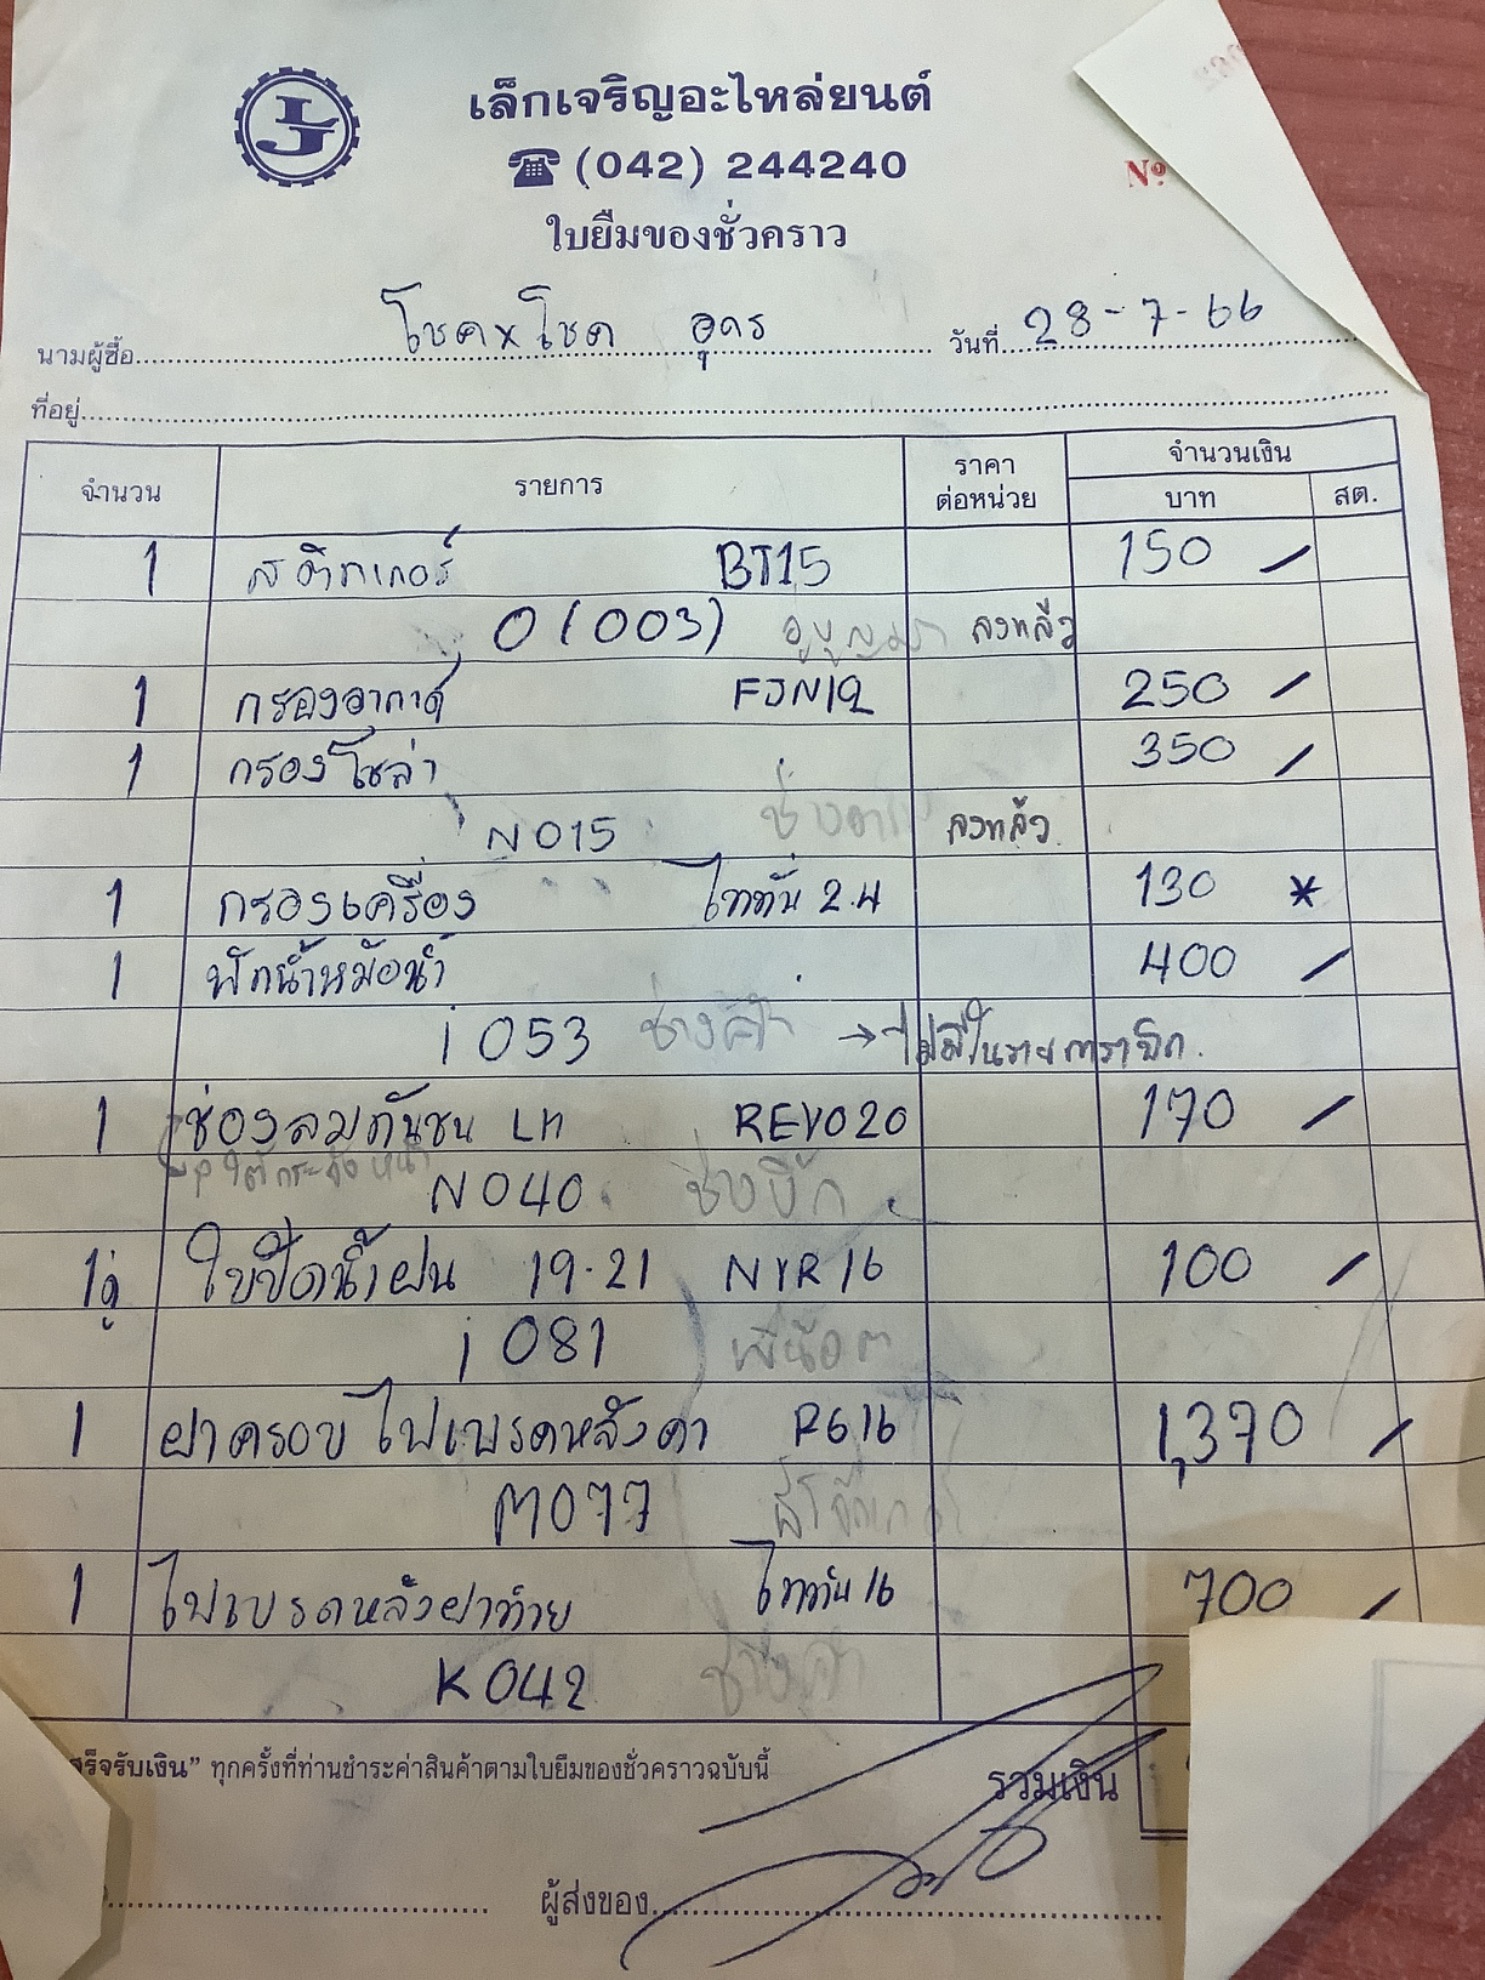 เล็กเจริญอะไหล่ยนต์
(042) 244240
Nº
ใบยืมของชั่วคราว
นามผู้ซื้อ โชคxโชค อุดร วันที่ 28-7-66
ที่อยู่
จำนวน รายการ ราคาต่อหน่วย จำนวนเงิน บาท สต.
1 สติกเกอร์ BT15 150
0(003) ลงแล้ว
1 กรองอากาศ FJN12 250
1 กรองโซล่า 350
N015 ลงแล้ว
1 กรองเครื่อง ไททั่น 2.4 130 *
1 พักน้ำหม้อน้ำ 400
i 053 → ไม่มีในรายการเบิก.
1 ช่องลมกันชน LH REVO20 170
N040 ช่างบิ๊ก
1คู่ ใบปัดน้ำฝน 19-21 NYR16 100
i 081
1 ฝาครอบไฟเบรคหลังคา R616 1,370
M077
1 ไฟเบรคหลังฝาท้าย ไททัน 16 700
K042
สร็จรับเงิน” ทุกครั้งที่ท่านชำระค่าสินค้าตามใบยืมของชั่วคราวฉบับนี้
รวมเงิน
ผู้ส่งของ